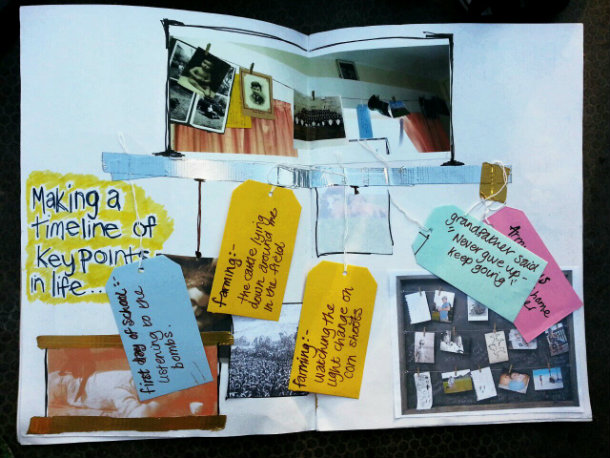 Making a
timeline of
Key points
in life...
first day of school:-
listening to the
bombs..
farming:-
the cattle lying
down around me
in the field
farming:-
watching the
light change on
corn shoots
grandfather said
"Never give up -
keep going"
home